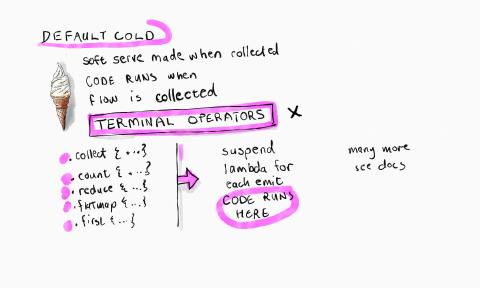 DEFAULT COLD
soft serve made when collected
CODE RUNS when
flow is collected
TERMINAL OPERATORS X
.collect {...}
.count {...}
.reduce {...}
.flatmap {...}
.first {...}
suspend
lambda for
each emit
CODE RUNS
HERE
many more
see docs